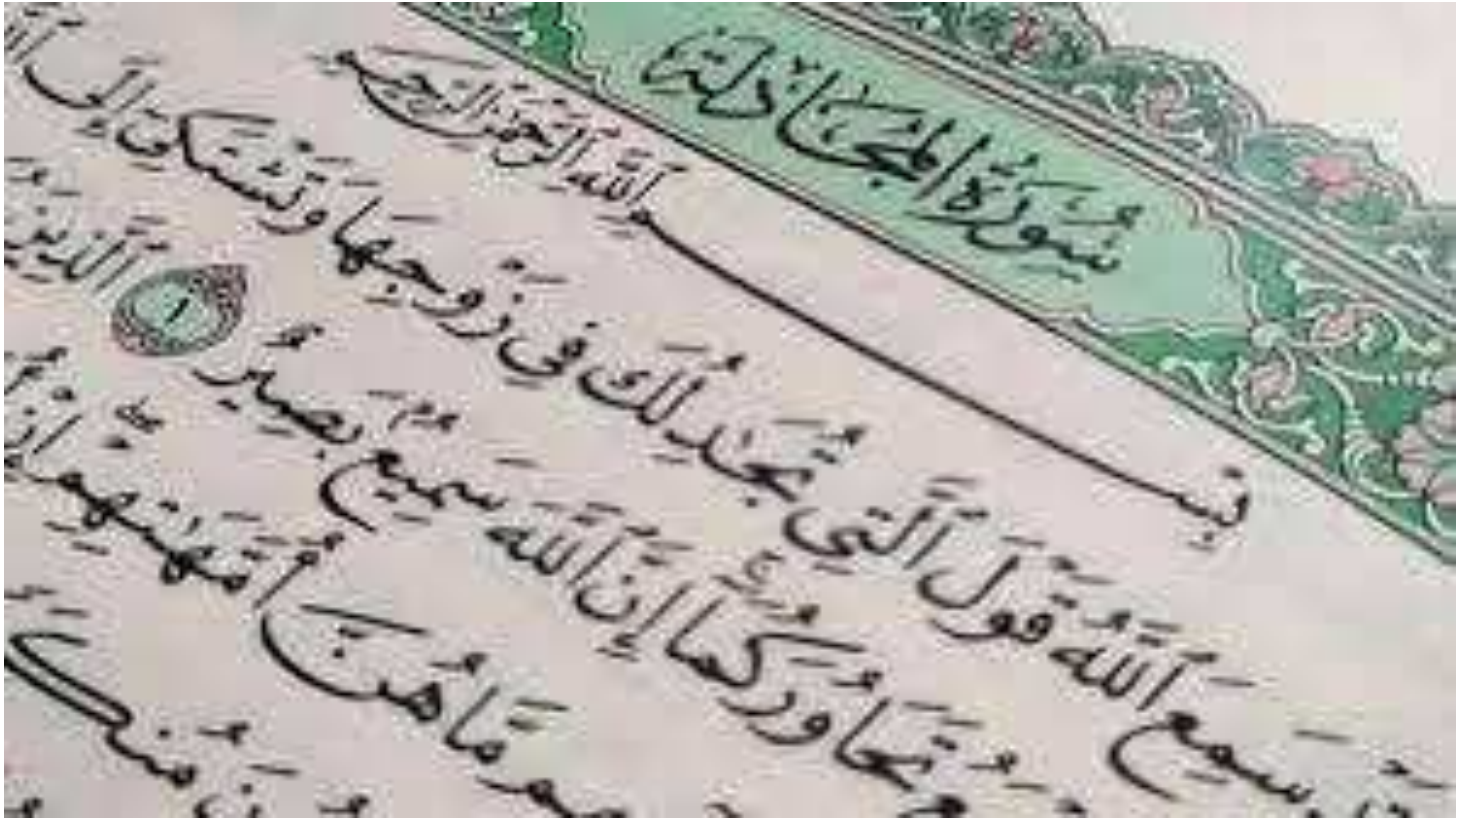 سُورَةُ الْمُجَادِلَةِ
بِسْمِ اللَّهِ الرَّحْمَٰنِ الرَّحِيمِ
سَمِعَ ٱللَّهُ قَوْلَ ٱلَّتِي تُجَٰدِلُكَ فِي زَوْجِهَا وَتَشْتَكِيٓ إِلَى
تَحَاوُرَكُمَآ إِنَّ ٱللَّهَ سَمِيعٌۢ بَصِيرٌ ١ ٱلَّذِينَ
مَّا هُنَّ أُمَّهَٰتِهِمْۖ إِنْ